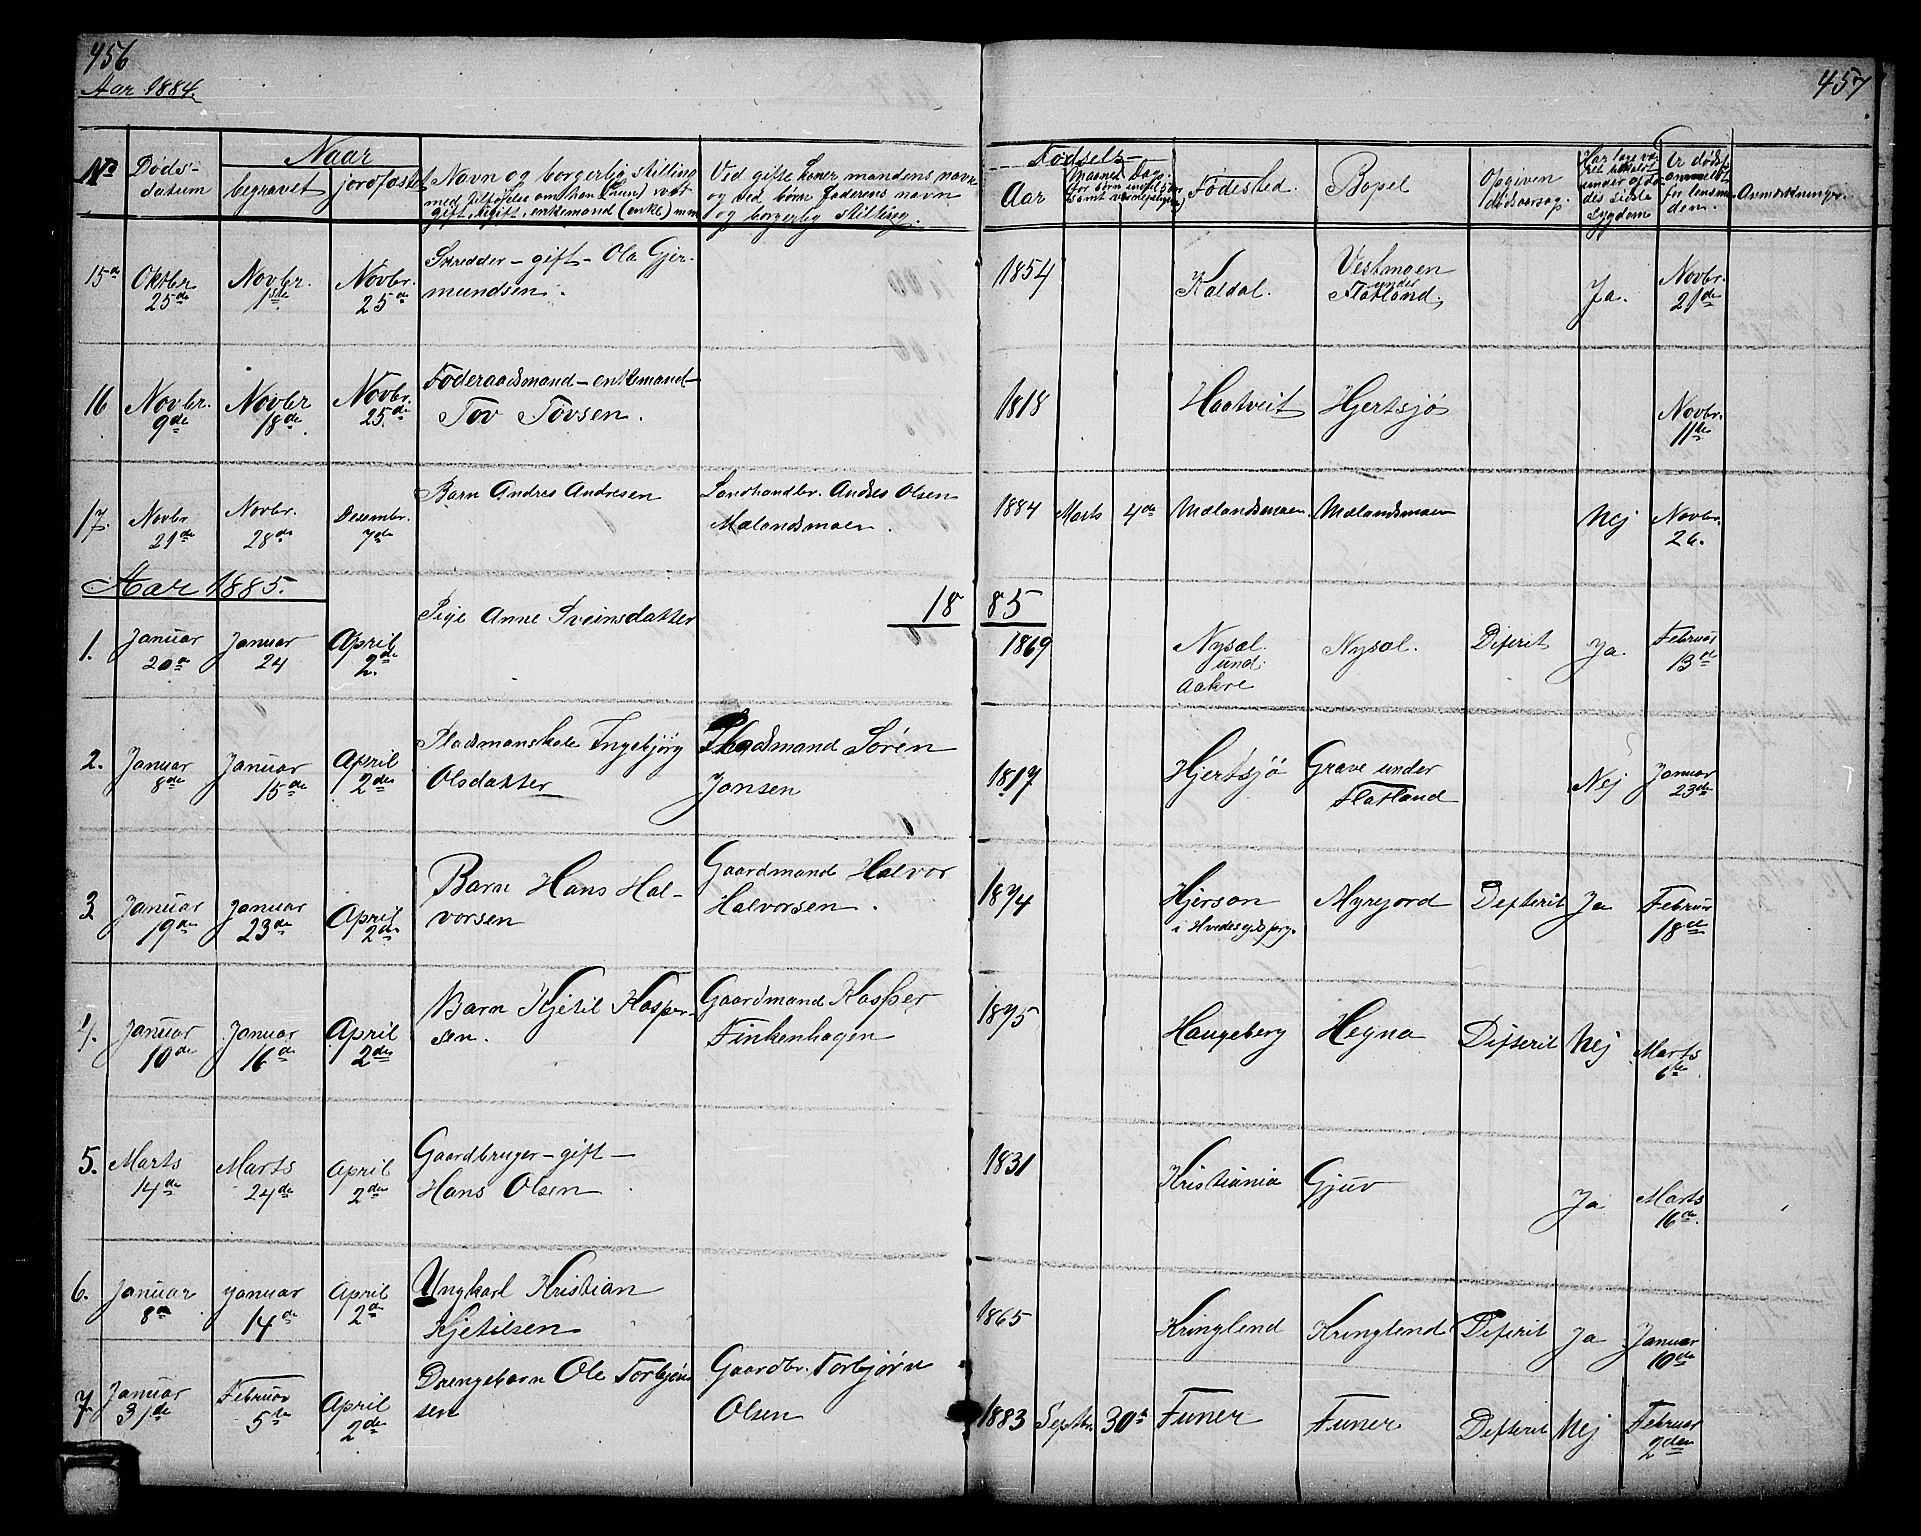 456
Aar 1884.
457
No
Døds-
datum
Naar
begravet
jordfæstet
Navn og borgerlig stilling
med tilføielse om han (hun) var
gift, ugift, enkemand (enke) m.m.
Ved gifte koner mandens navn
og ved børn faderens navn
og borgerlig stilling.
Fødsels-
Aar
Maaned Dag.
for børn
Fødested.
Bopel
Opgiven
dødsaarsag.
Har læge væ-
ret
under
des sidste
sygdom
Er dødsf.
anmeldt
for lensman-
den.
Anmerkninger.
15de
Oktbr
25de
Novbr.
1ste
Novbr.
25de
Skredder - gift - Ola Gjer-
mundsen.
1854
Kaldal.
Vestmoen
under
Flatland.
Ja.
Novbr.
21de
16
Novbr.
9de
Novbr
18de
Novbr.
25de
Føderaadsmand - enkemand -
Tov Tovsen.
1818
Haatveit
Hjertsjø
Novbr.
11de
17.
Novbr
21de
Novbr.
28de
Desembr.
7de
Barn Andres Andresen
Landhandlr. Andres Olsen
Mælandsmoen.
1884
Marts
4de
Mælandsmoen.
Mælandsmoen
Nej
Novbr.
26.
Aar 1885.
1885
1.
Januar
20de
Januar
24
April
2de
Pige Anne Sveinsdatter
1869
Nysal
und.
Aakre
Nysal.
Difterit
Ja.
Februar
13de
2.
Januar
8de
Januar
15de
April
2den
Pladsmanskone Ingebjørg
Olsdatter
Pladsmand Søren
Jonsen
1817
Hjertsjø
Grave under
Flatland
Nej
Januar
23de
3
Januar
19de
Januar
23de
April
2den
Barn Hans Hal-
vorsen
Gaardmand Halvor
Halvorsen.
1874
Hjerson
i Hvedesejdsprg.
Myrejord
Defterit
Ja
Februar
18de
4.
Januar
10de
Januar
16de
April
2den
Barn Kjetil Kasper-
sen.
Gaardmand Kasper
Finkenhagen
1875
Haugeberg
Hegna
Difterit
Nej
Marts
6te
5.
Marts
14de
Marts
24de
April
2den
Gaardbruger - gift -
Hans Olsen
1831
Kristiania
Gjuv
Ja
Marts
16de
6.
Januar
8de
Januar
14de
April
2de
Ungkarl Kristian
Kjetilsen
1865
Kringlend
Kringlend
Difterit
Ja
Januar
10de
7
Januar
31de
Februar
5te
April
2de
Drengebarn Ole Torbjørn
sen
Gaardbr. Torbjørn
Olsen
1883
Septbr.
30te
Funer
Funer
Difterit
Nej
Februar
2den